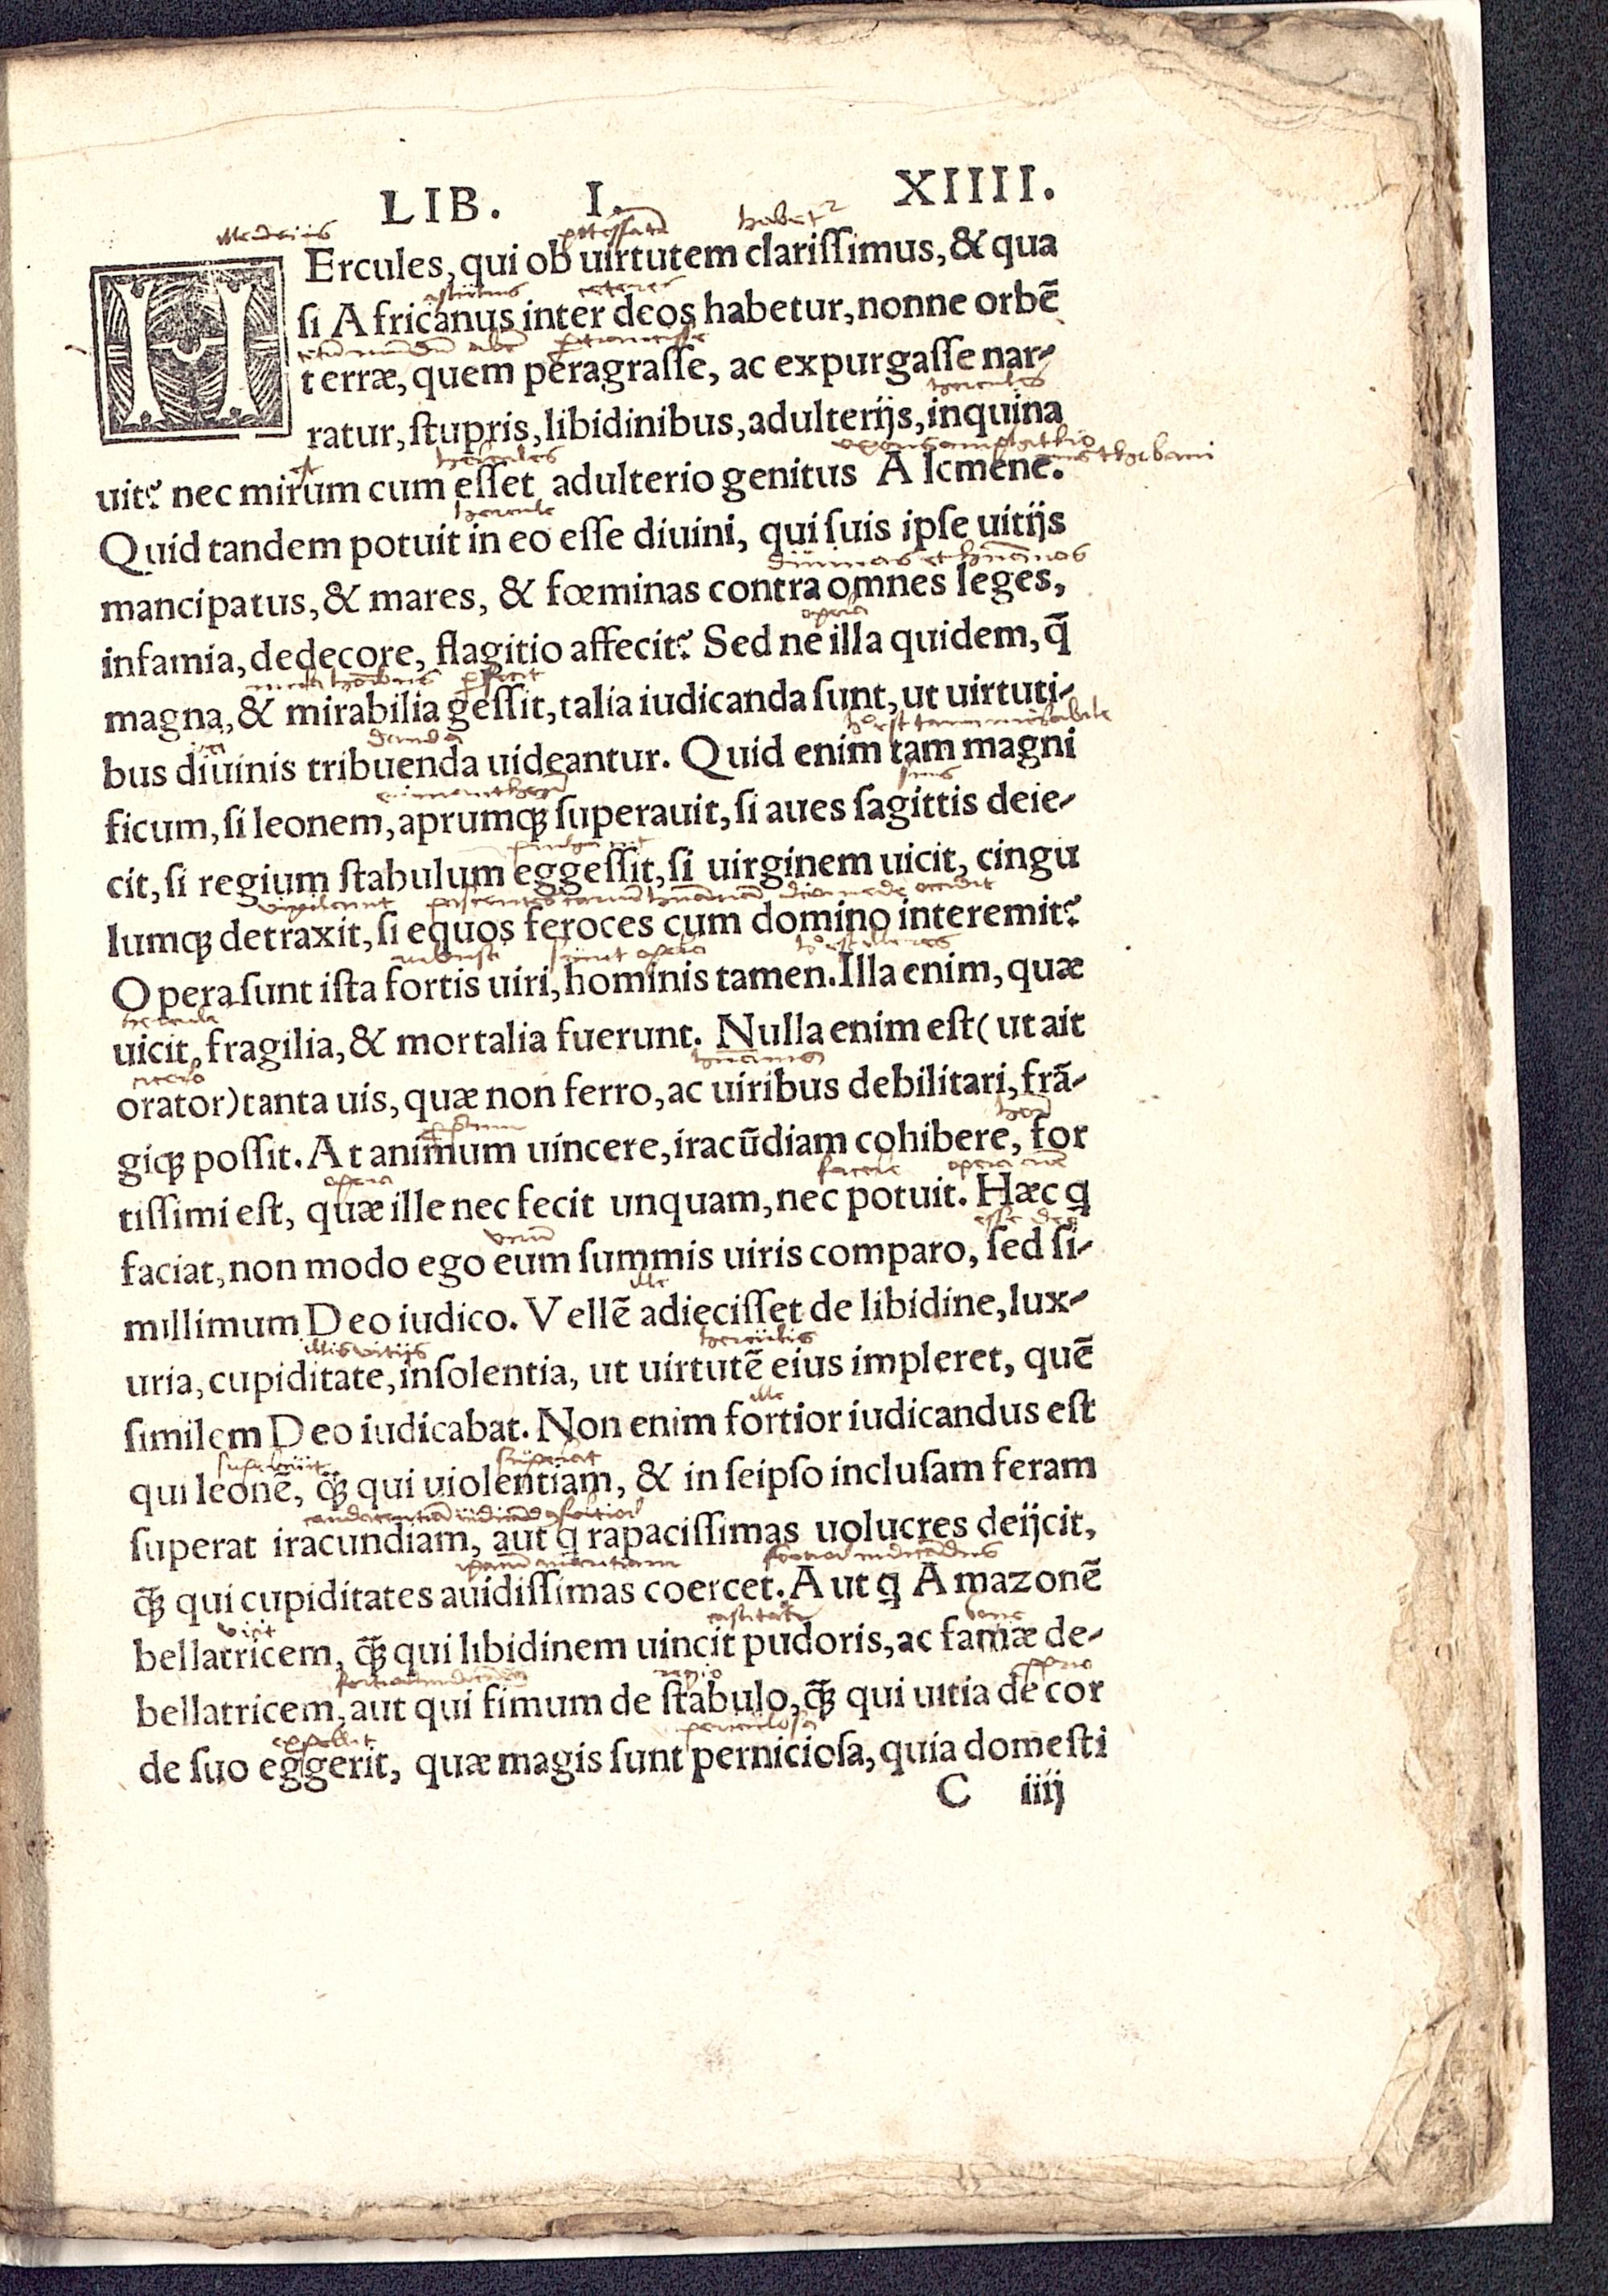 LIB. I. XIIII.
HErcules, qui ob uirtutem clarissimus, & qua
si Africanus inter deos habetur, nonne orbẽ
terræ, quem peragrasse, ac expurgasse nar-
ratur, stupris, libidinibus, adulterijs, inquina
hercules
uit? nec mirum cum esset adulterio genitus Alcmene.
hercule
Quid tandem potuit in eo esse diuini, qui suis ipse uitijs
mancipatus, & mares, & fœminas contra omnes leges,
opera
infamia, dedecore, flagitio affecit? Sed ne illa quidem, q̃
magna, & mirabilia gessit, talia iudicanda sunt, ut uirtuti-
danda
bus diuinis tribuenda uideantur. Quid enim tam magni
suis
ficum, si leonem, aprumq; superauit, si aues sagittis deie-
cit, si regium stabulum eggessit, si uirginem uicit, cingu
lumq; detraxit, si equos feroces cum domino interemit?
Opera sunt ista fortis uiri, hominis tamen. Illa enim, quæ
uicit, fragilia, & mortalia fuerunt. Nulla enim est (ut ait
cicero
orator) tanta uis, quæ non ferro, ac uiribus debilitari, frã-
giq; possit. At animum uincere, iracũdiam cohibere, for
opera facere
tissimi est, quæ ille nec fecit unquam, nec potuit. Hæc q
faciat, non modo ego eum summis uiris comparo, sed si-
ille
millimum Deo iudico. Vellẽ adiecisset de libidine, lux-
illis uitijs herculis
uria, cupiditate, insolentia, ut uirtutẽ eius impleret, quẽ
ille
similem Deo iudicabat. Non enim fortior iudicandus est
superauit superat
qui leonẽ, q̃; qui uiolentiam, & in seipso inclusam feram
superat iracundiam, aut q rapacissimas uolucres deijcit,
q̃; qui cupiditates auidissimas coercet. Aut q Amazonẽ
vicit
bellatricem, q̃; qui libidinem uincit pudoris, ac famæ de-
regio
bellatricem, aut qui fimum de stabulo, q̃; qui uitia de cor
expellit periculosa
de suo eggerit, quæ magis sunt perniciosa, quia domesti
C iiij